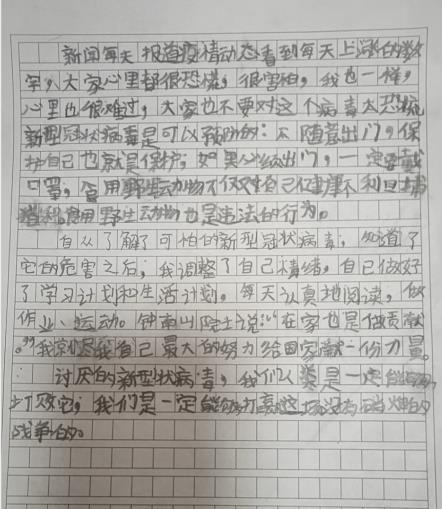 新闻每天报道疫情动态看到每天上涨的数
字，大家心里都很恐慌，很害怕，我也一样，
心里也很难过，大家也不要对这个病毒太恐慌
新型冠状病毒是可以预防的：不随意出门，保
护自己也就是保护；如果必须出门，一定要戴
口罩，食用野生动物不仅对自己健康不利，捕
猎和食用野生动物也是违法的行为。
自从了解了可怕的新型冠状病毒，知道了
它的危害之后，我调整了自己情绪，自己做好
了学习计划和生活计划。每天认真地阅读，做
作业、运动。钟南山院士说：“在家也是做贡献
。”我尽我自己最大的努力给国家献一份力量。
讨厌的新型状病毒，我们人类是一定能够
打败它，我们是一定能够打赢这场没有硝烟的
战争的。